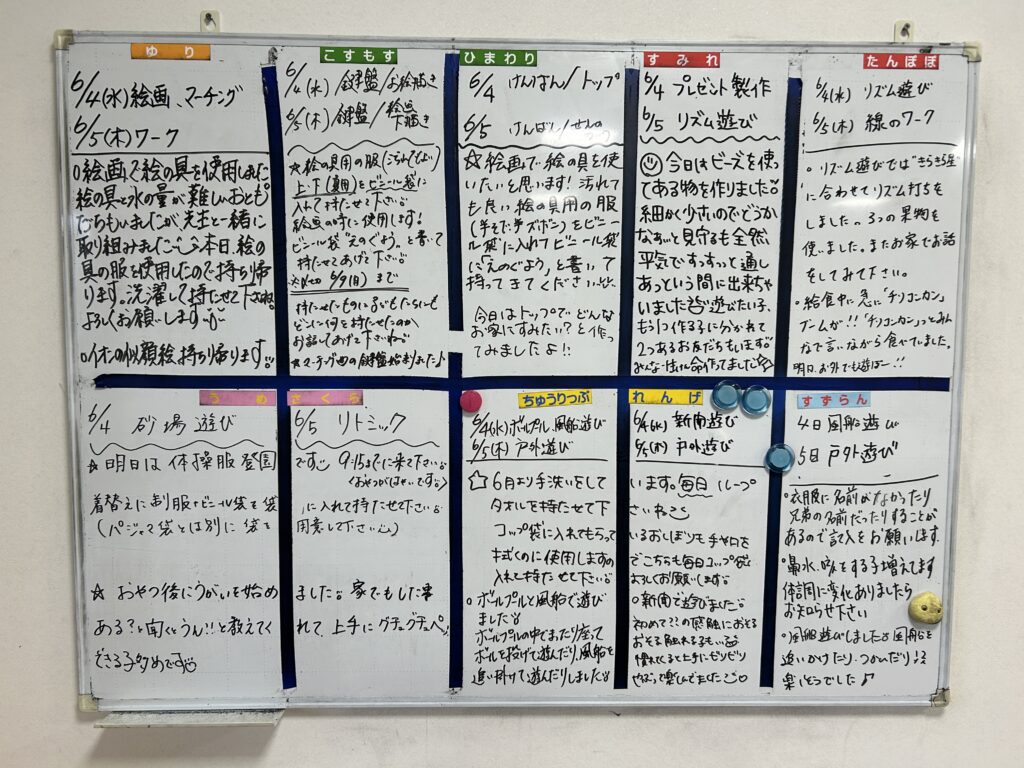 ゆり
6/4(水)絵画、マーチング
6/5(木)ワーク
○絵画で絵の具を使用しました
絵の具と水の量が難しいおとも
だちもいましたが、先生と一緒に
取り組みました 本日、絵の
具の服を使用したので持ち帰り
ます。洗濯して持たせて下さいね。
よろしくお願いします
○イオンの似顔絵、持ち帰ります
こすもす
6/4(水)/鍵盤/お絵描き
6/5(木)/鍵盤/絵画下描き
☆絵の具用の服(汚れてもよい)
上・下(夏用)をビニール袋に
入れて持たせて下さい。
絵画の時に使用します!
ビニール袋に"えのぐよう"と書いて
持たせてあげて下さい
6/9(月)まで
持たせたものは子どもたちにも
どこに何を持たせたのか、
お話してあげて下さいね
☆マーチング曲の鍵盤始まりました♪
ひまわり
6/4 けんばん/トップ
6/5 けんばん/
☆絵画で絵の具を使
いたいと思います!汚れて
も良い絵の具用の服
(半そで半ズボン)をビニー
ル袋に入れてビニール袋
に「えのぐよう」と書いて
持ってきてください
今日はトップで どんな
お家にすみたい?と作っ
てみましたよ!!
すみれ
6/4 プレゼント製作
6/5 リズム遊び
今日はビーズを使っ
てある物を作りました
細かく小さいのでどうか
なぁ〜と見守るも全然
平気ですっすっと通し
あっという間に出来ちゃ
いました 遊びたい子、
もう1つ作る子に分かれて
2つあるお友だちもいます
みんな一生けん命作ってました☆
たんぽぽ
6/4(水) リズム遊び
6/5(木) 線のワーク
・リズム遊びでは"きらきら星"
に合わせてリズム打ちを
しました。3つの果物を
使いました。またお家でお話
をしてみて下さい。
・給食中に急に「チリコンカン」
ブームが!!「チリコンカン」っとみん
なで言いながら食べていました。
明日、お外でも遊ぼー!!
うめ
さくら
6/4 砂場遊び
6/5 リトミック
☆明日は体操服登園
です 9:15までに来て下さい
着替えに制服+ビニール袋を袋
に入れて持たせて下さい
(パジャマ袋とは別に袋を
用意して下さい)
☆おやつ後にうがいを始め
ました 家でもした事
ある?と聞くとうん!!と教えてく
れて、上手にグチュグチュペッ
できる子多めです
ちゅうりっぷ
6/4(水)ボールプール、風船遊び
6/5(木)戸外遊び
☆6月より手洗いをして
タオルを持たせて下
コップ袋に入れてもらって
拭くのに使用しますの
入れて持たせて下さい
○ボールプールと風船で遊び
ました
ボールプールの中で走ったり座って
ボールを投げて遊んだり、風船を
追い掛けて遊んだりしました
れんげ
6/4(水)新聞遊び
6/5(木)戸外遊び
います。毎日 ループ
さいね
いるおしぼりも手や口を
でこちらも毎日コップ袋に
よろしくお願いします
○新聞で遊びました
初めて??の感触におそる
おそる触れる子もいました
慣れてくると上手にビリビリ
やぶって楽しんでました
すずらん
4日 風船遊び
5日 戸外遊び
・衣服に名前がなかったり
兄弟の名前だったりすることが
あるので記入をお願いします
・鼻水、咳をする子増えてます
体調に変化ありましたら
お知らせ下さい
・風船遊びしました 風船を
追いかけたり、つかんだり!!
楽しそうでした♪